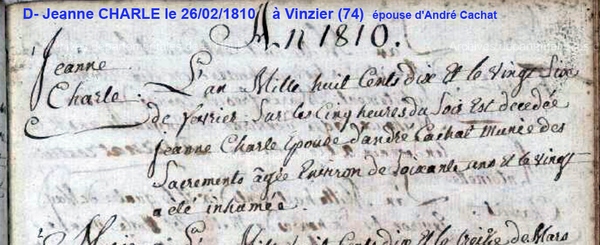 D- Jeanne CHARLE le 26/02/1810 à Vinzier (74) épouse d'André Cachat
An 1810.
Jeanne
Charle.
L'an Mille huit Cents dix Et le vingt Six
de fevrier, Sur les Cinq heures du Soir Est decedée
Jeanne Charle Epouse d'andré Cachat Munie des
Sacrements âgée Environ de Soixante ans et le vingt
a été inhumée.
L'an Mille huit Cents dix et le treize de Mars